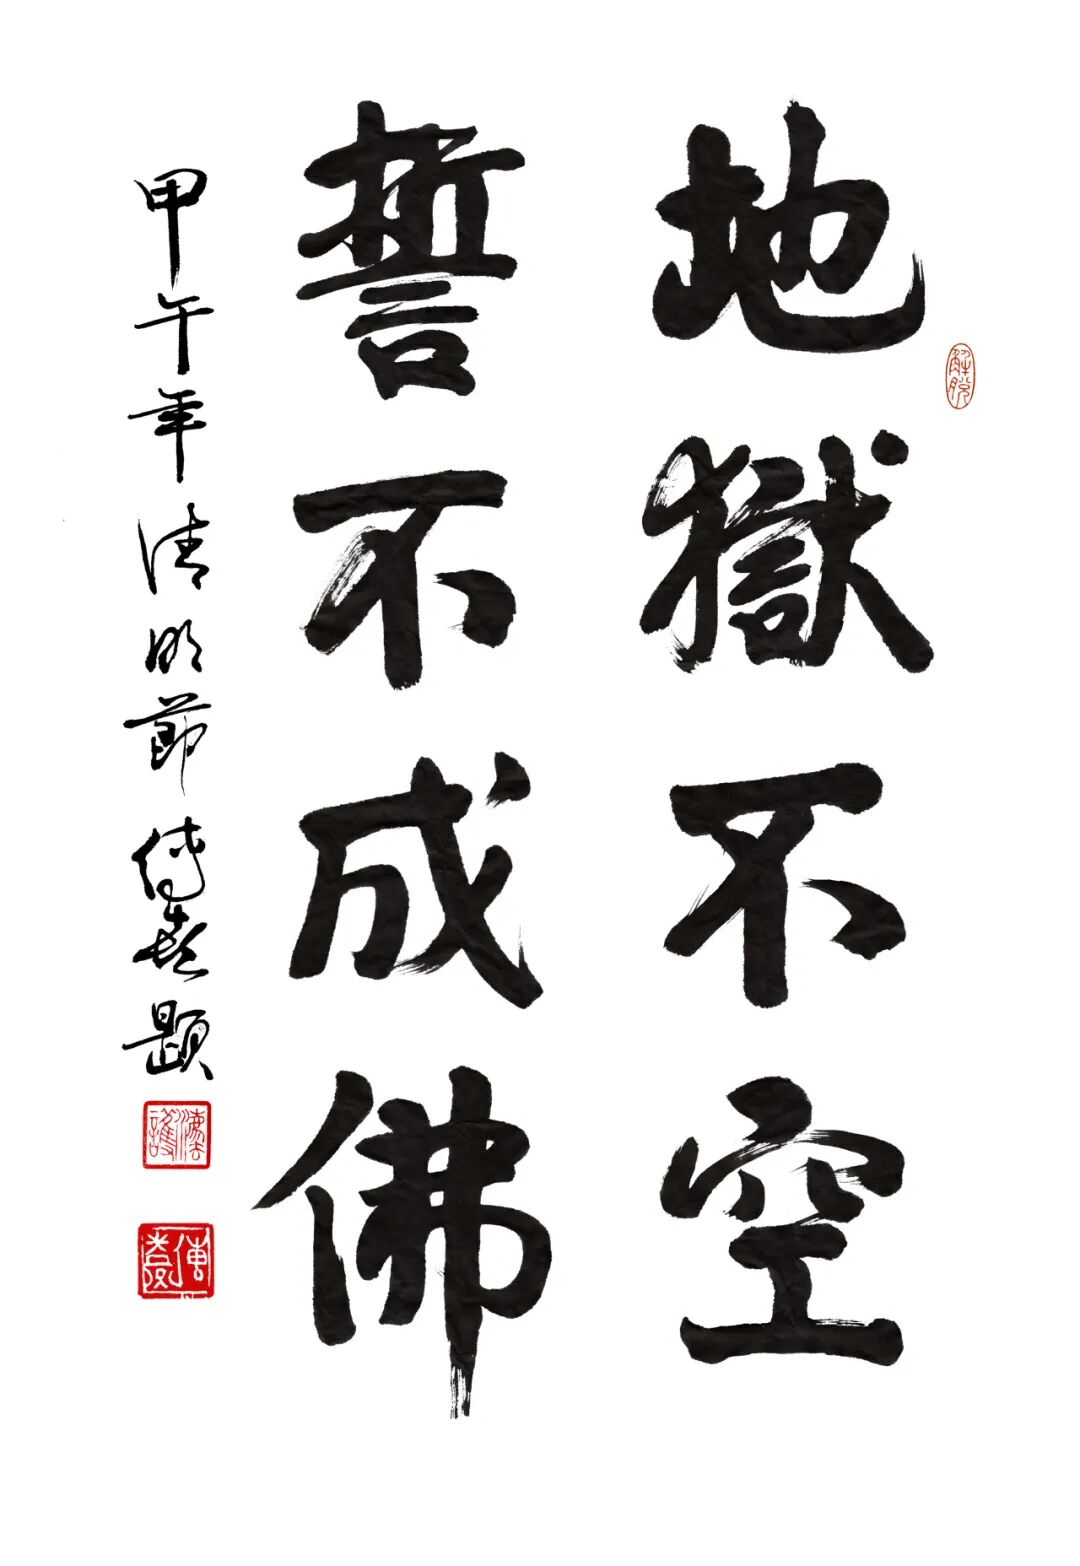 解脫
地獄不空
誓不成佛
甲午年清明節傳喜題
傳喜